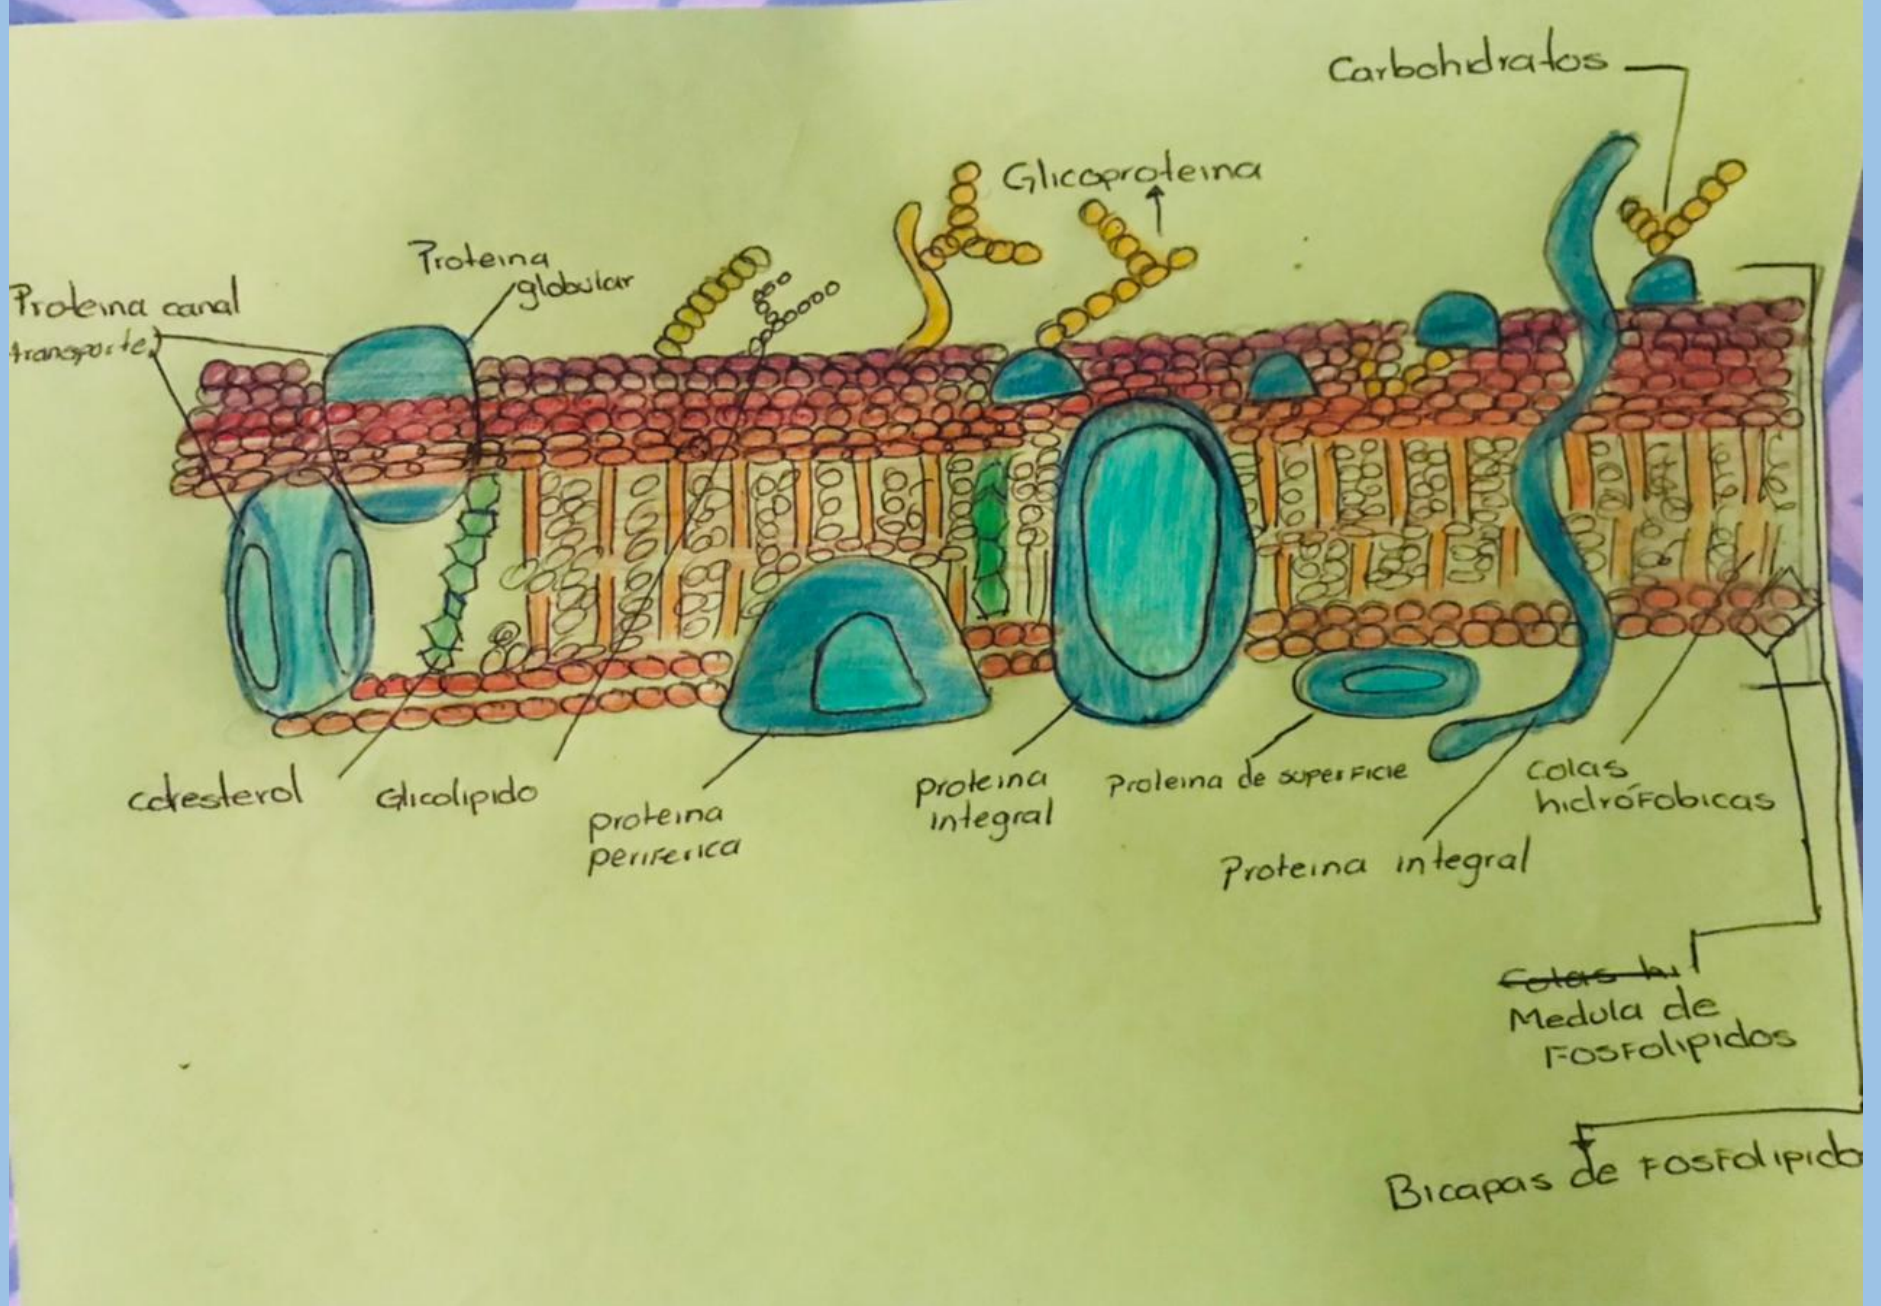 Carbohidratos
Glicoproteina
Proteina
globular
Proteina canal
transporte
colesterol
Glicolipido
proteina
periferica
proteina
integral
Proteina de superficie
Proteina integral
Colas
hidrófobicas
Colas hi
Medula de
Fosfolipidos
Bicapas de Fosfolipido